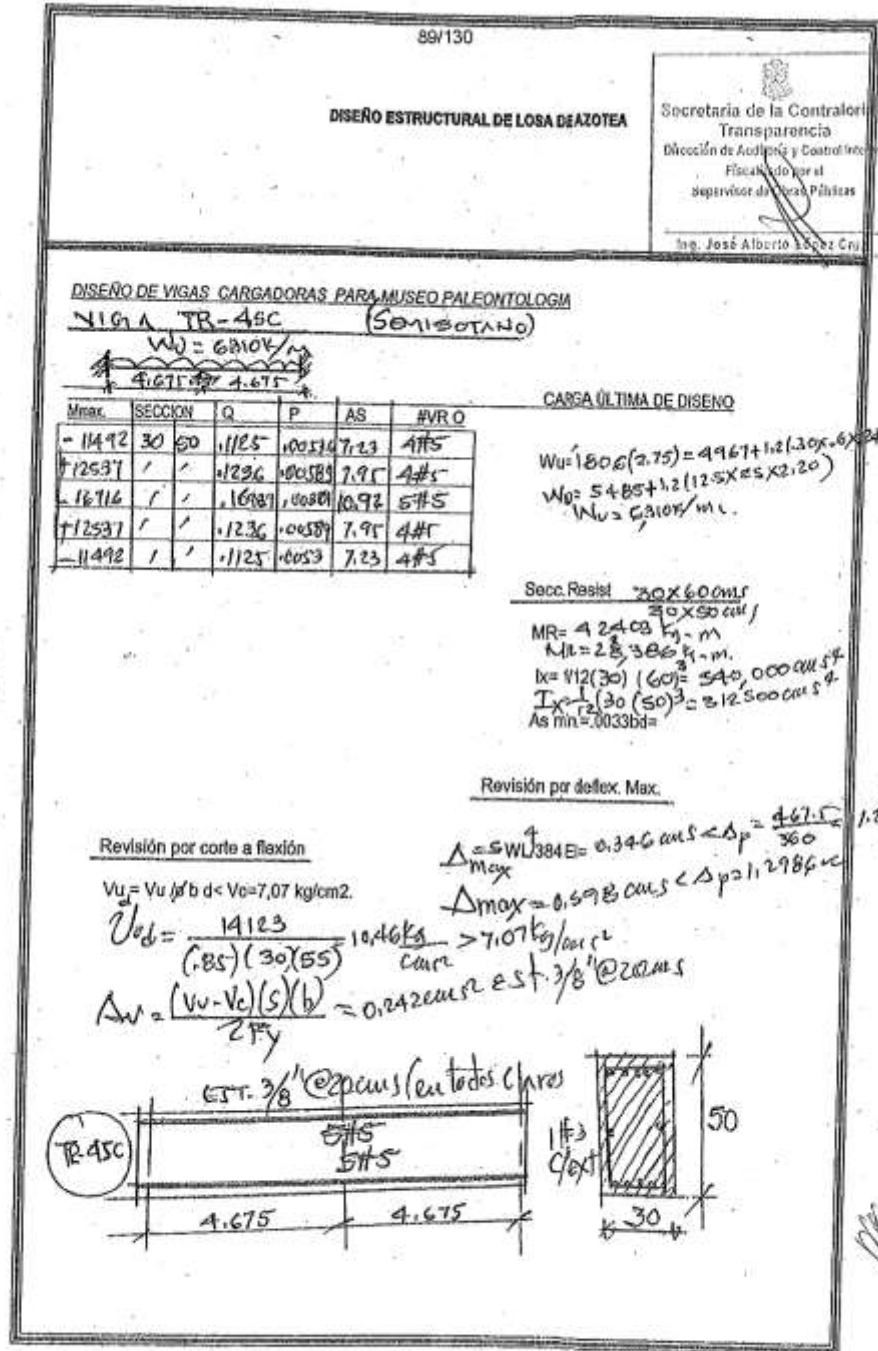 89/130
DISEÑO ESTRUCTURAL DE LOSA DEAZOTEA
Secretaria de la Contralori
Transparencia
Dirección de Auditoria y Control Inte
Fiscalizado por el
Supervisor de Obras Públicas
Ing. José Alberto López Cru
DISEÑO DE VIGAS CARGADORAS PARA MUSEO PALEONTOLOGIA
VIGA TR-45C (SEMISOTANO)
WU = 6310K/m
4.675 4.675
Mmax. SECCION Q P AS #VR O
-11492 30 50 .1125 .00536 7.23 4#5
+12537 ' ' .1236 .00589 7.95 4#5
-16716 ' ' 10.92 5#5
+12537 ' ' .1236 .00589 7.95 4#5
-11492 ' ' .1125 .0053 7.23 4#5
CARGA ÚLTIMA DE DISENO
Wu=1806(2.75)=4967+1.2(.30x.6x24
Wu= 5485+1.2(125X25X2.20)
Wu= 6310K/ml.
Secc. Resist 30X60cms
30X50cms
MR= 42403 kg-m
MR=28,386 kg-m.
Ix= 1/12(30)(60)³= 540,000cms4
Ix=1/12(30(50)³=312500cms4
As min=.0033bd=
Revisión por deflex. Max.
Δmax=5WL4/384EI= 0.346 cms <Δp= 467.5/360 = 1.2
Δmax=0.598 cms <Δp=1,2986
Revisión por corte a flexión
Vu d= Vu /ø b d< Vc=7,07 kg/cm2.
Vud= 14123/(.85)(30)(55) = 10,46 kg/cms² > 7.07kg/cms²
Av = (Vu-Vc)(s)(b)/2Fy = 0,242cms² Est. 3/8"@20cms
EST. 3/8"@20cms (en todos claros
TR-45C
5#5
5#5
4.675 4.675
1#3
c/ext
50
30